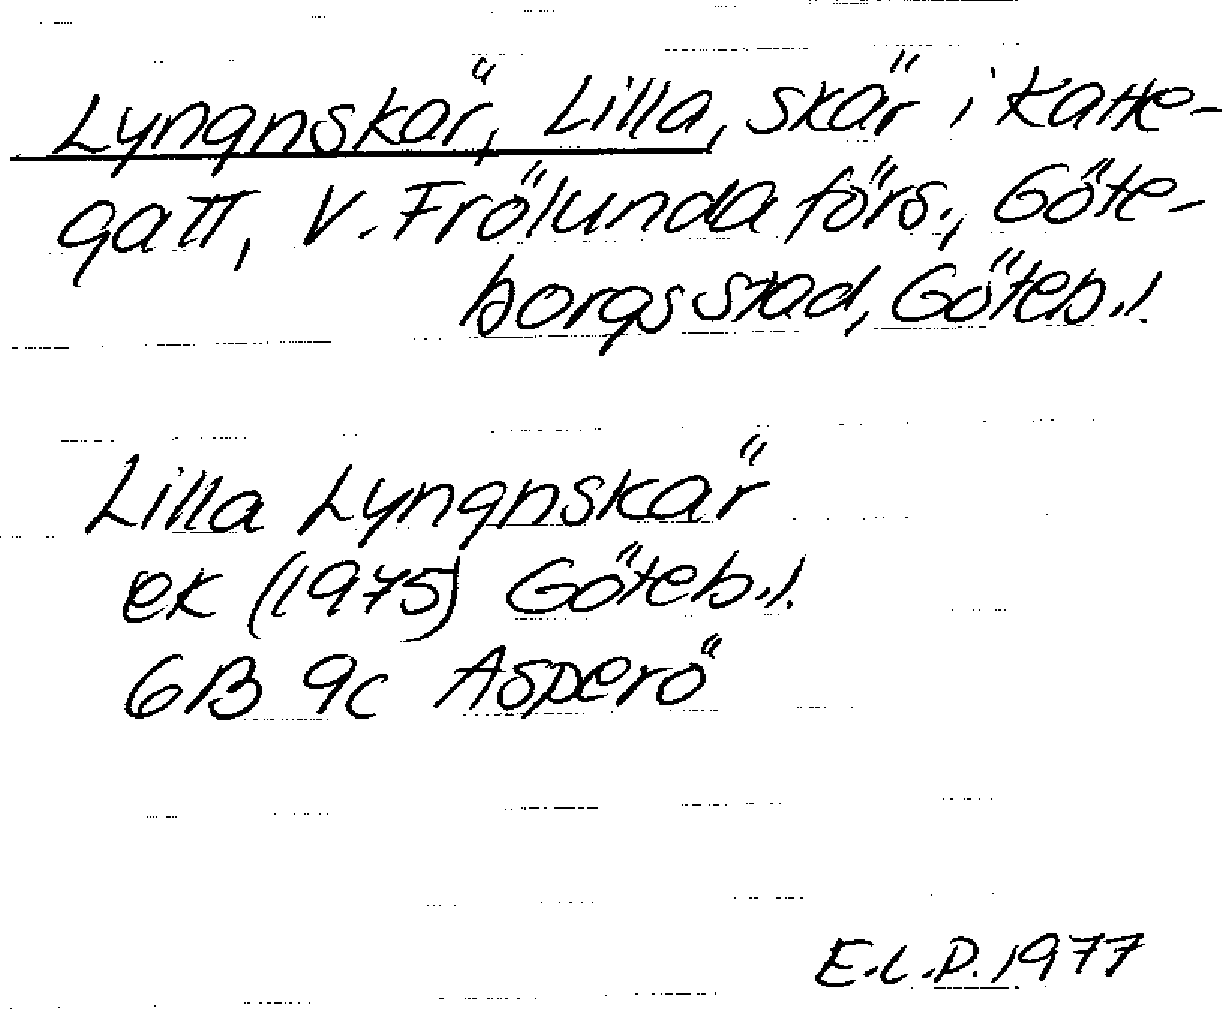 Lyngnskär, Lilla, skär i Katte-
gatt, V. Frölunda förs., Göte-
borgs stad, Göteb.l.
Lilla Lyngnskär
ek (1975) Göteb.l.
6B 9c Asperö
E.L.P. 1977